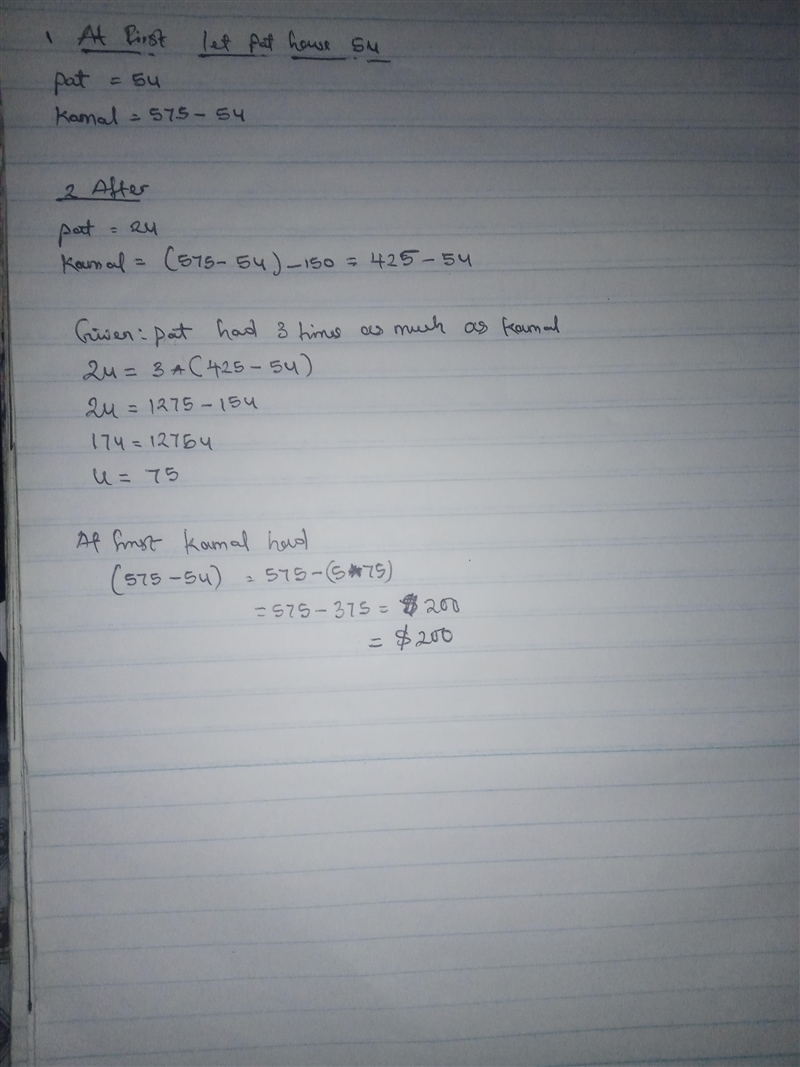 1 At first let pat house 5u
pat = 5u
Kamal = 575 - 5u
2 After
pat = 2u
Kamal = (575 - 5u) - 150 = 425 - 5u
Given: pat had 3 times as much as Kamal
2u = 3 * (425 - 5u)
2u = 1275 - 15u
17u = 1275u
u = 75
At first Kamal had
(575 - 5u) = 575 - (5*75)
= 575 - 375 = $ 200
= $ 200